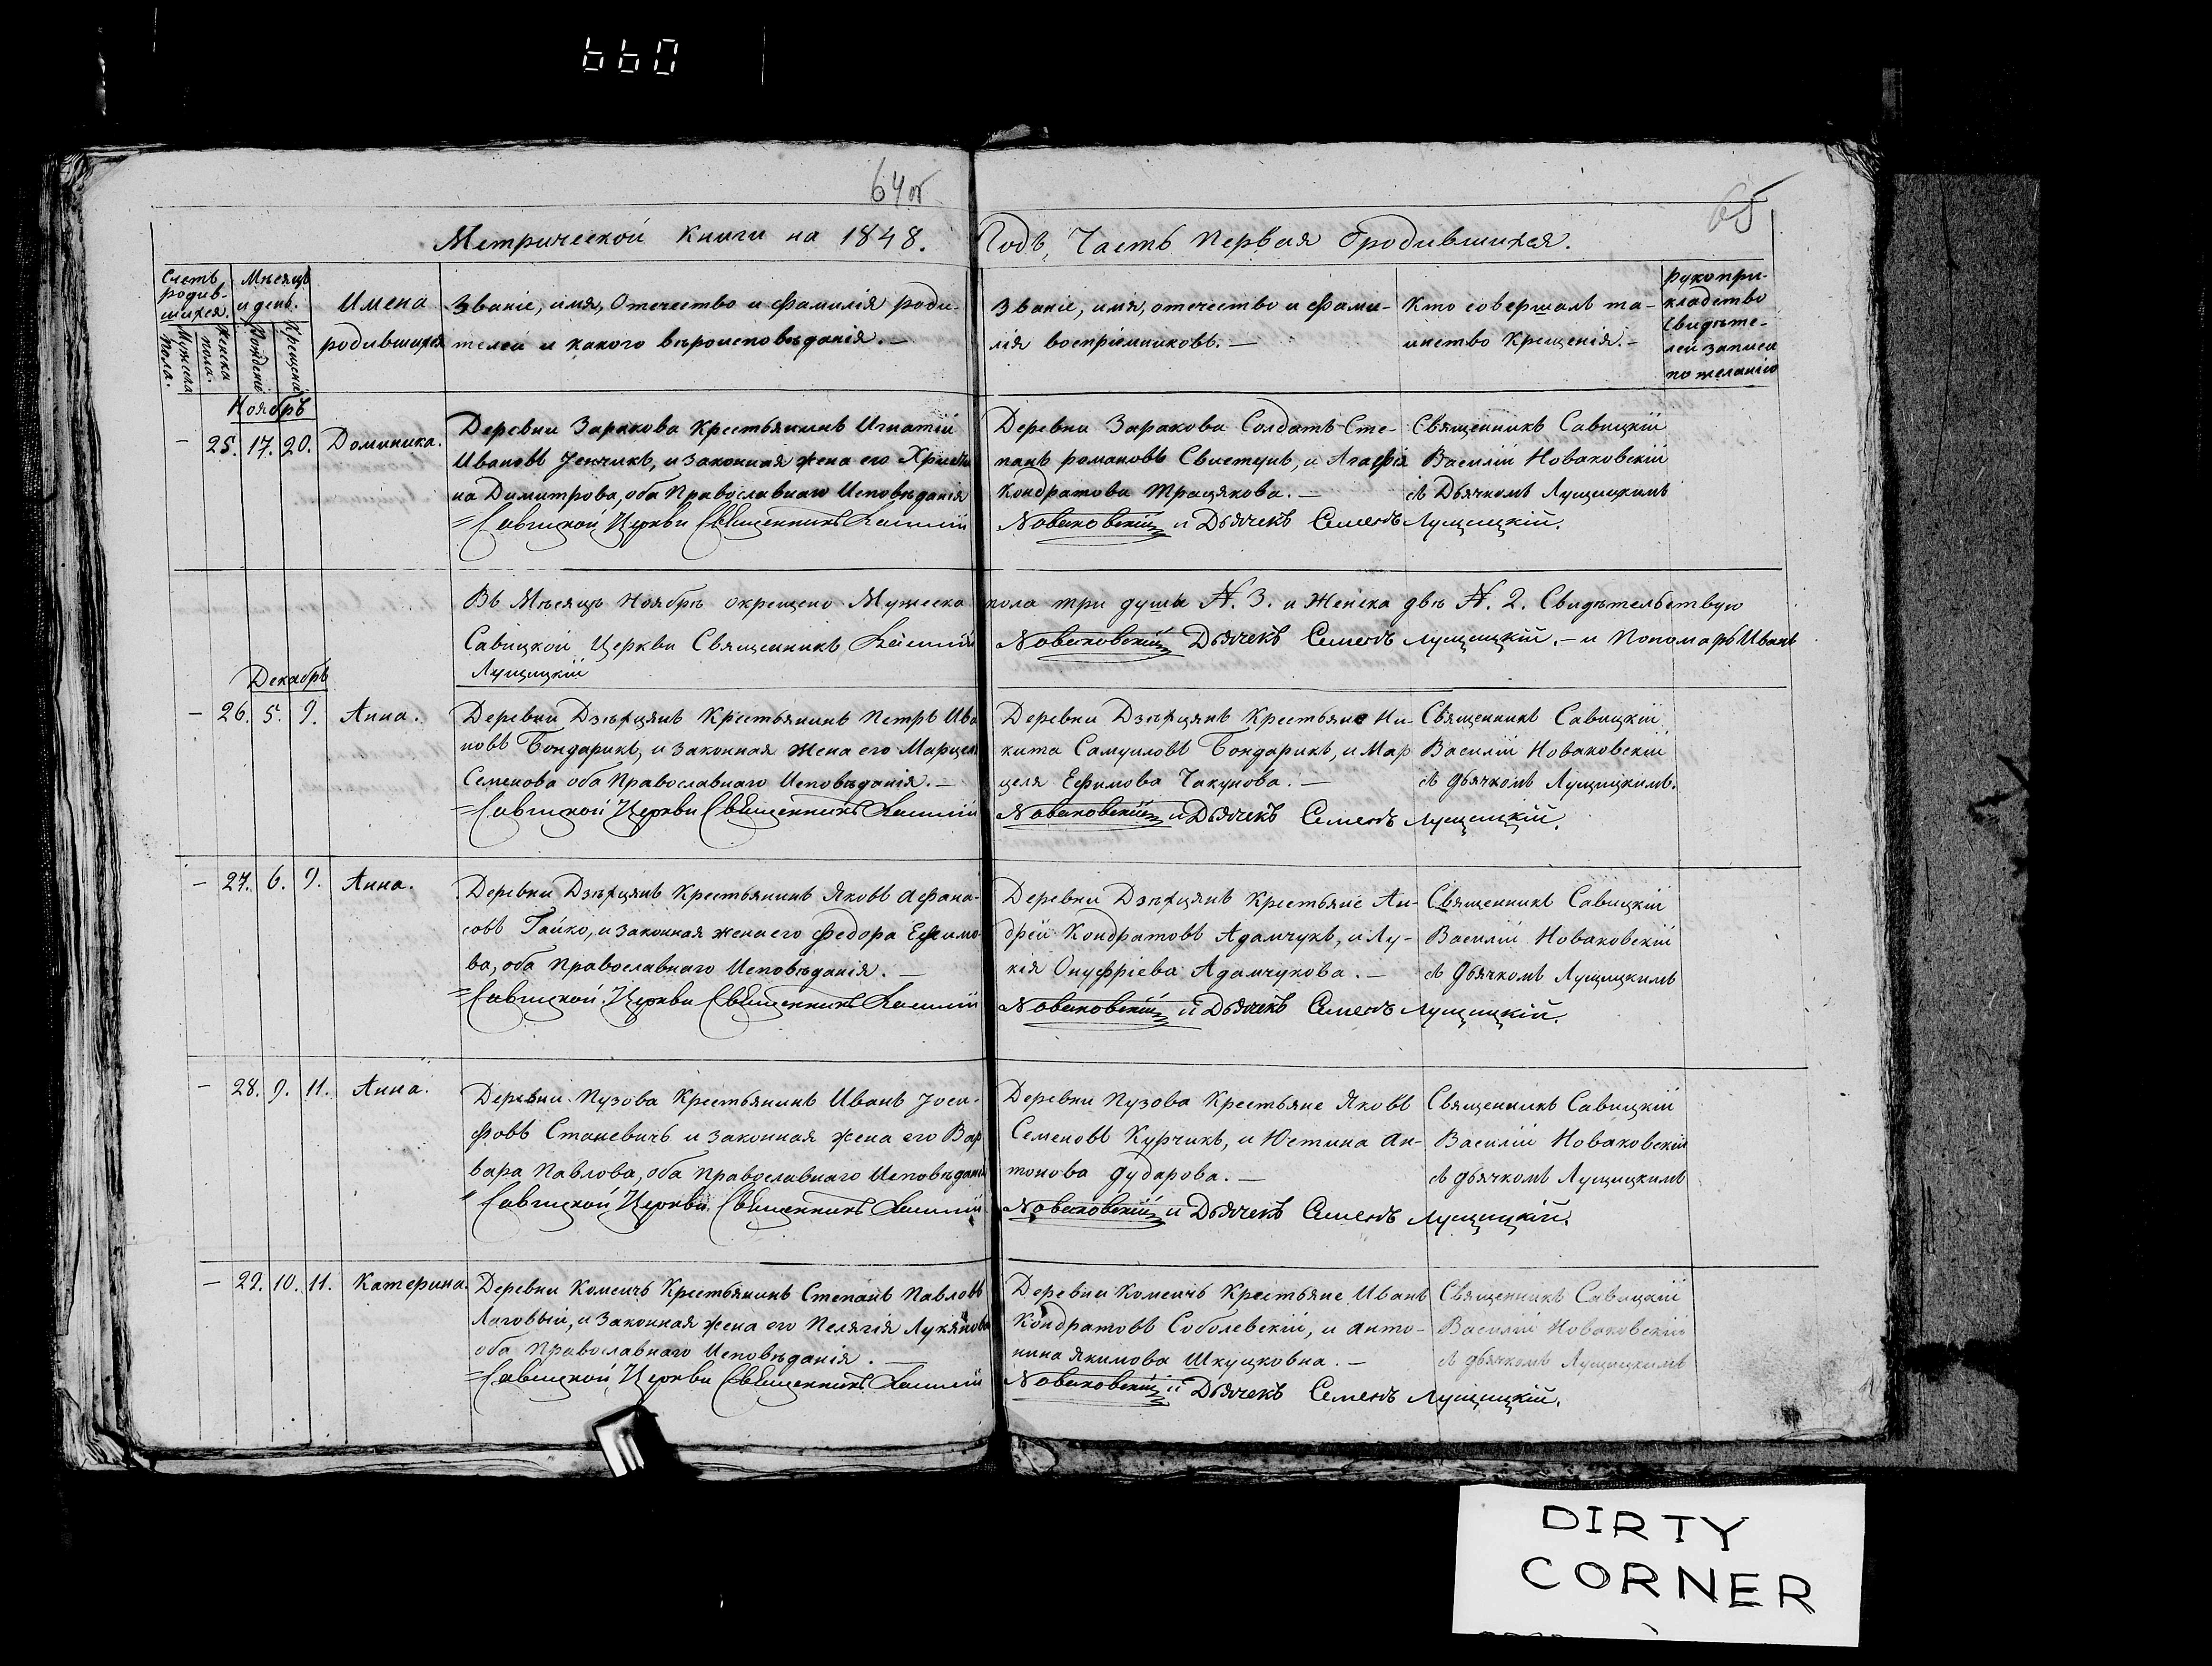 660
64об
65
Метрической Книги на 1848. Годъ, Часть Первая о родившихся.
Счетъ родив-шихся.
Мѣсяцъ и день.
Мужеска пола.
Женска пола.
Рожденія
Крещенія
Имена
родившихся
Званіе, имя, Отечество и фамилія роди-
телей и какого вѣроисповѣданія. —
Званіе, имя, отечество и фами-
лія воспріемниковъ. —
Кто совершалъ та-
инство Крещенія. -
Рукопри-
кладство
свидѣте-
лей записи
по желанію
Ноябрь
- 25. 17. 20. Доминика.
Деревни Заракова Крестьянинъ Игнатій
Ивановъ Ленчикъ, и Законная жена его Христи
на Димитрова, оба Православнаго Исповѣданія
Деревни Заракова Солдатъ Сте-
панъ романовъ Свистунъ, и Агафія
Кондратова Трацякова. —
Священникъ Савицкій
Василій Новаковскій
съ Дьячкомъ Лущицкимъ
=Савицкой Церкви Священникъ Василій Новаковскій и Дьячекъ Семенъ Лущицкій.
Въ Мѣсяцѣ Ноябрѣ окрещено Мужеска пола три души №. 3. и Женска двѣ №. 2. Свидѣтельствую
Савицкой Церкви Священникъ Василій Новаковскій Дьячекъ Семенъ Лущицкій. – и Пономарь Иванъ
Лущицкій
Декабрь
- 26. 5. 9. Анна.
Деревни Дзѣхцянъ Крестьянинъ Петръ Ива
новъ Бондарикъ, и Законная жена его Марцеля
Семенова оба Православнаго Исповѣданія. —
Деревни Дзѣхцянъ Крестьяне Ни-
кита Самуиловъ Бондарикъ, и Мар
целя Ефимова Чакунова. —
Священникъ Савицкій
Василій Новаковскій
съ дьячкомъ Лущицкимъ.
=Савицкой Церкви Священникъ Василій Новаковскій и Дьячекъ Семенъ Лущицкій.
- 27. 6. 9. Анна.
Деревни Дзѣхцянъ Крестьянинъ Яковъ Афана-
совъ Гайко, и Законная жена его Федора Ефимо
ва, оба Православнаго Исповѣданія. —
Деревни Дзѣхцянъ Крестьяне Ан-
дрей Кондратовъ Адамчукъ, и Лу-
кія Онуфріева Адамчукова. —
Священникъ Савицкій
Василій Новаковскій
съ дьячкомъ Лущицкимъ
=Савицкой Церкви Священникъ Василій Новаковскій и Дьячекъ Семенъ Лущицкій.
- 28. 9. 11. Анна.
Деревни Пузова Крестьянинъ Иванъ Іоси-
фовъ Станевичъ и Законная жена его Вар
вара Павлова, оба Православнаго Исповѣданія
Деревни Пузова Крестьяне Яковъ
Семеновъ Курчикъ, и Юстина Ан-
тонова Дударова. —
Священникъ Савицкій
Василій Новаковскій
съ дьячкомъ Лущицкимъ
=Савицкой Церкви Священникъ Василій Новаковскій и Дьячекъ Семенъ Лущицкій.
- 29. 10. 11. Катерина.
Деревни Комсичъ Крестьянинъ Степанъ Павловъ
Лаговый, и Законная жена его Пелягія Лукянова
оба Православнаго Исповѣданія. —
Деревни Комсичъ Крестьяне Иванъ
Кондратовъ Соболевскій, и Анто-
нина Якимова Шкуцковна. —
Священникъ Савицкій
Василій Новаковскій
съ дьячкомъ Лущицкимъ
=Савицкой Церкви Священникъ Василій Новаковскій и Дьячекъ Семенъ Лущицкій.
DIRTY
CORNER